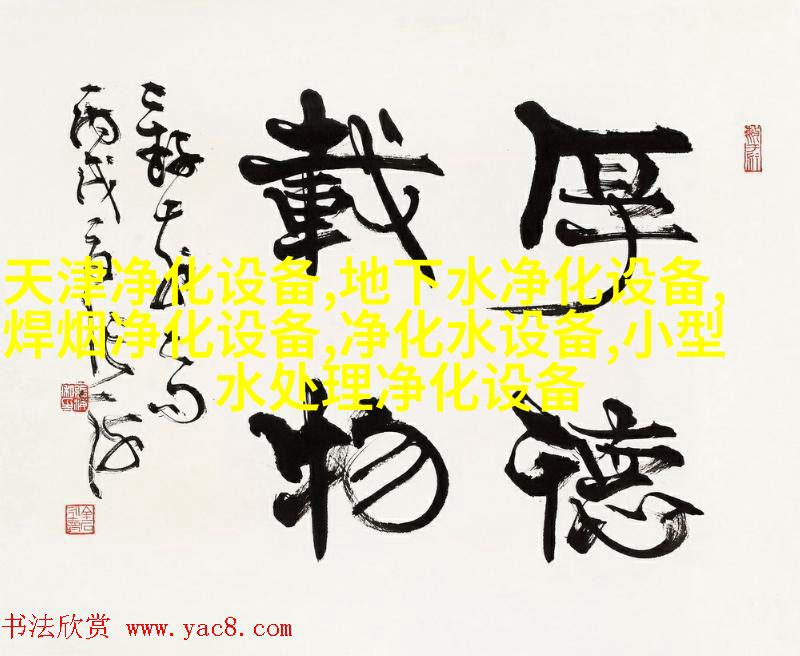 厚德
載物
丙戌
天津净化设备,地下水净化设备,
焊烟净化设备,净化水设备,小型
水处理净化设备
书法欣赏 www.yac8.com